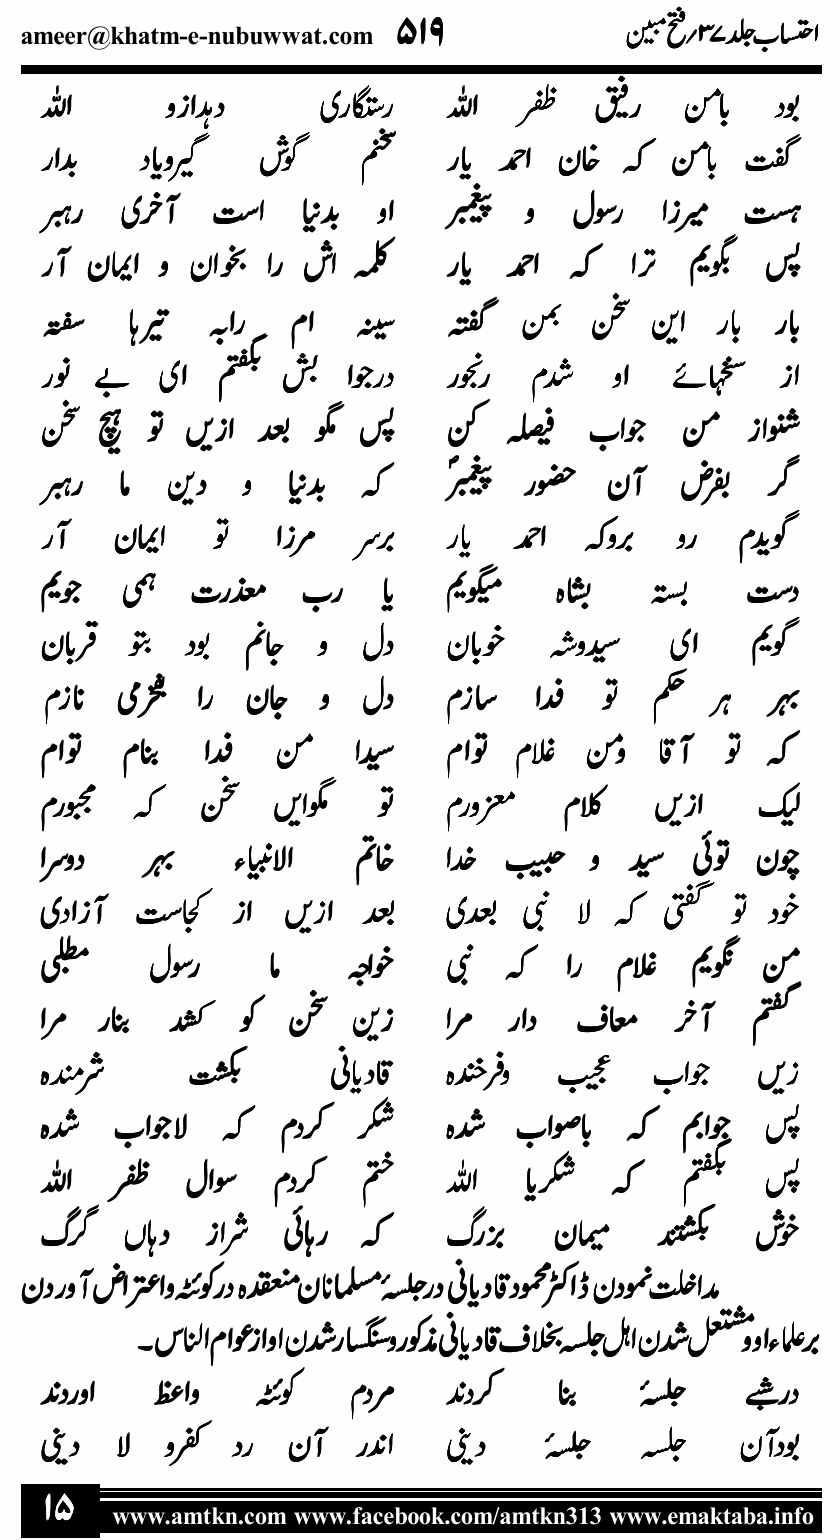 احتساب جلد ۳۷/فتح مبین ۵۱۹ ameer@khatm-e-nubuwwat.com
بود بامن رفیق ظفر اللہ رستگاری دہدازو اللہ
گفت بامن کہ خان احمد یار سخنم گوش گیرویاد بدار
ہست میرزا رسول و پیغمبر او بدنیا است آخری رہبر
پس بگویم ترا کہ احمد یار کلمہ اش را بخوان و ایمان آر
بار بار این سخن بمن گفتہ سینہ ام رابہ تیرہا سفتہ
از سخہائے او شدم رنجور درجوا بش بگفتم ای بے نور
شنواز من جواب فیصلہ کن پس مگو بعد ازیں تو ہیچ سخن
گر بفرض آن حضور پیغمبرؐ کہ بدنیا و دین ما رہبر
گویدم رو بروکہ احمد یار برسر مرزا تو ایمان آر
دست بستہ بشاہ میگویم یا رب معذرت ہمی جویم
گویم ای سیدوشہ خوبان دل و جانم بود بتو قربان
بہر ہر حکم تو فدا سازم دل و جان را بفخرمی نازم
کہ تو آقا ومن غلام توام سیدا من فدا بنام توام
لیک ازیں کلام معزورم تو مگوایں سخن کہ مجبورم
چون توئی سید و حبیب خدا خاتم الانبیاء بہر دوسرا
خود تو گفتی کہ لا نبی بعدی بعد ازیں از کجاست آزادی
من نگویم غلام را کہ نبی خواجہ ما رسول مطلبی
گفتم آخر معاف دار مرا زین سخن کو کشد بنار مرا
زیں جواب عجیب وفرخندہ قادیانی بکشت شرمندہ
پس جوابم کہ باصواب شدہ شکر کردم کہ لاجواب شدہ
پس بگفتم کہ شکریا اللہ ختم کردم سوال ظفر اللہ
خوش بکشتند میمان بزرگ کہ رہائی شراز دہاں گرگ
مداخلت نمودن ڈاکٹر محمود قادیانی درجلسۂ مسلمانان منعقدہ درکوئٹہ واعتراض آوردن
برعلماء اوو مشتعل شدن اہل جلسہ بخلاف قادیانی مذکور وسنگسار شدن اواز عوام الناس۔
درشبے جلسۂ بنا کردند مردم کوئٹہ واعظ اوردند
بودآن جلسہ جلسۂ دینی اندر آن رد کفرو لا دینی
۱۵ www.amtkn.com www.facebook.com/amtkn313 www.emaktaba.info